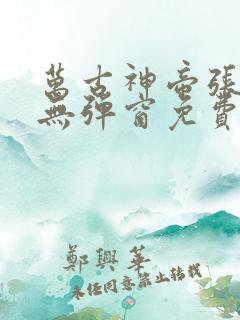 萬古神帝張
無彈窗免費
鄭興華
未經同意禁止轉載